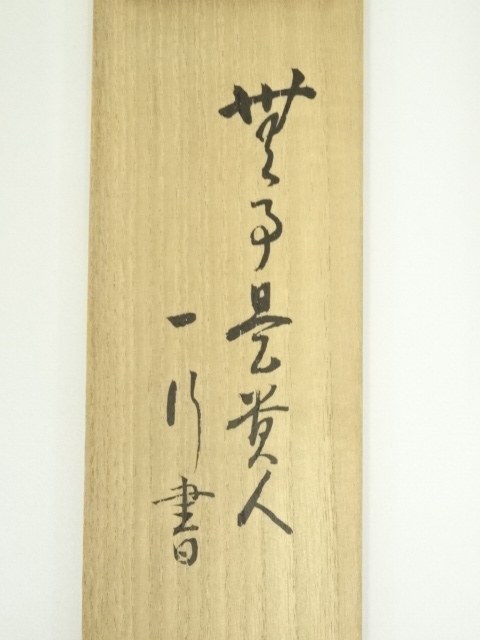 無事是貴人
一行書